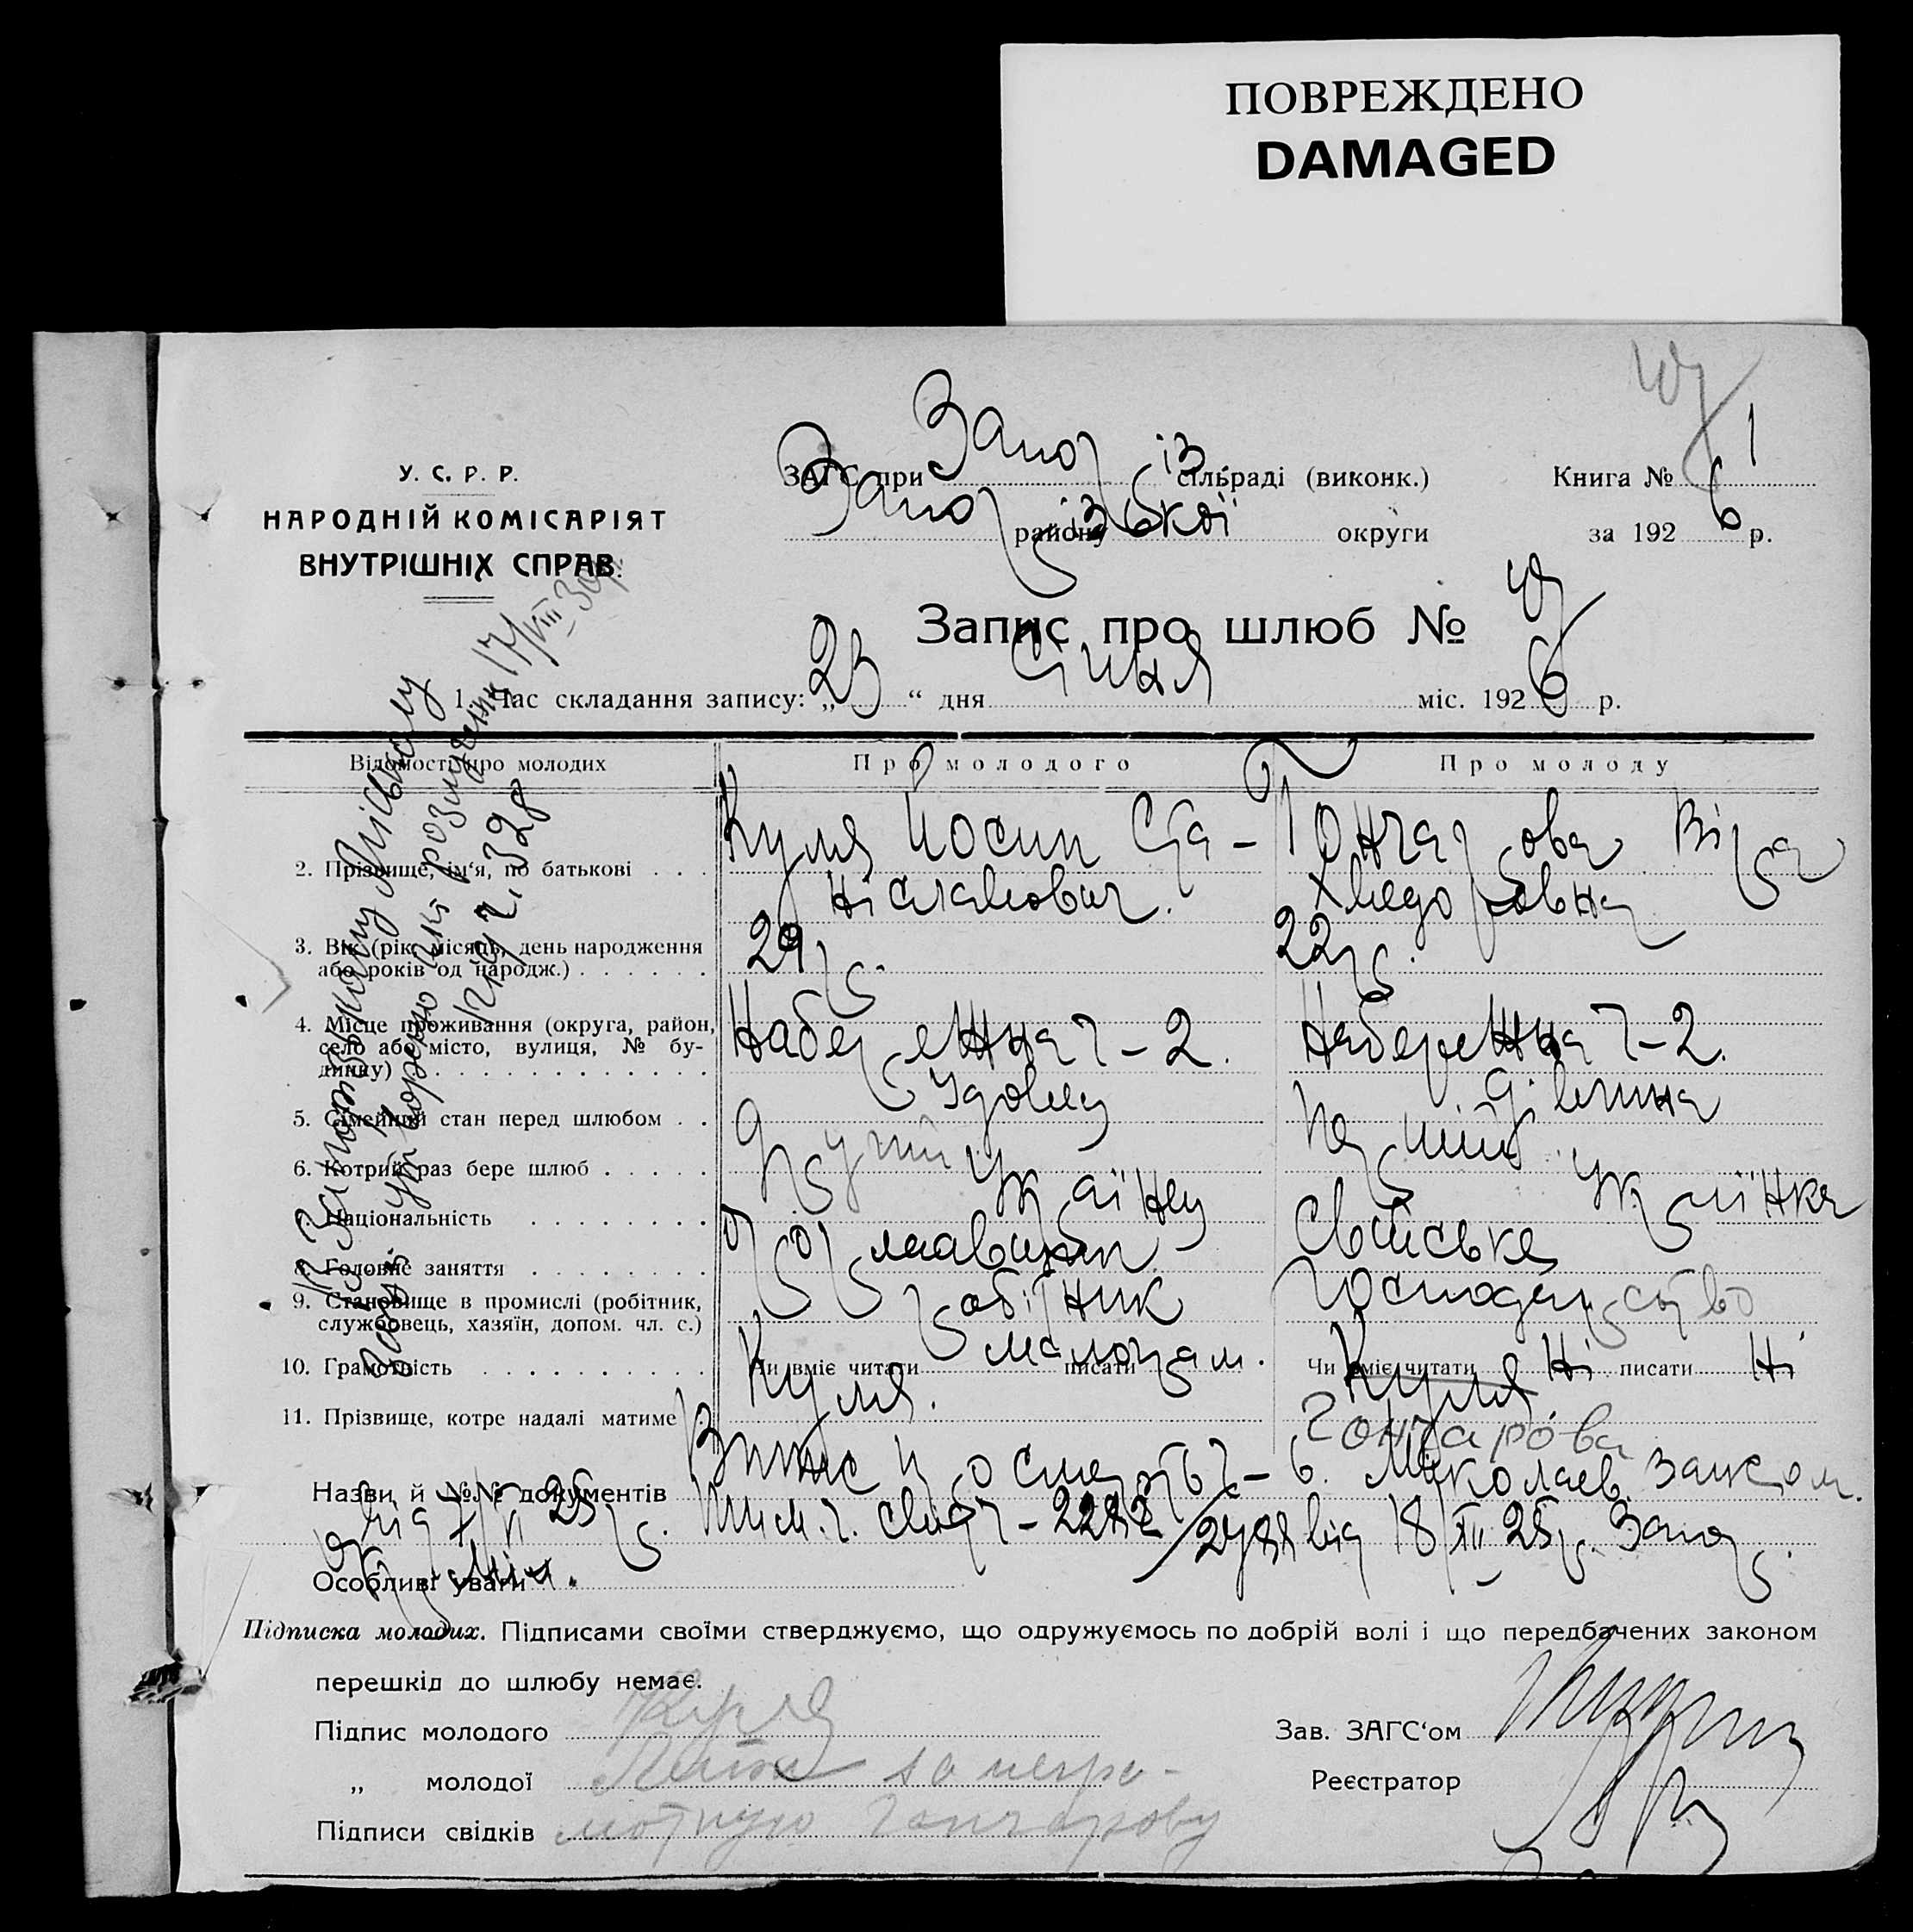 ПОВРЕЖДЕНО
DAMAGED
У. С. Р. Р.
НАРОДНІЙ КОМІСАРІЯТ
ВНУТРІШНІХ СПРАВ.
ЗАГС при Запоріз сільраді (виконк.) Книга № 1
Запорізької району округи за 1926 р.
Запис про шлюб №
1. Час складання запису: „23“ дня Січня міс. 1926 р.
Відомості про молодих Про молодого Про молоду
2. Прізвище, ім'я, по батькові . . . Куля Йосип Ста- Гончарова Віра
ніславович. Хведоровна
3. Вік (рік, місяць, день народження 29 р. 22 р.
або років од народж.) . . . . . .
4. Місце проживання (округа, район, Набережна ч-2. Набережна ч-2.
село або місто, вулиця, № бу-
динку) . . . . . . . . . . . .
5. Сімейний стан перед шлюбом . . Удовец дівчина
6. Котрий раз бере шлюб . . . . . другий перший
7. Національність . . . . . . . . Українец Українка
8. Головне заняття . . . . . . . . Свійське
9. Становище в промислі (робітник, робітник господарство
службовець, хазяїн, допом. чл. с.)
10. Грамотність . . . . . . . . . . Чи вміє читати писати малограм. Чи вміє читати Ні писати Ні
11. Прізвище, котре надалі матиме Куля. Куля
Гончарова
Назви й №№ документів Витяг про смерть ч- 6. Миколаев. Загсом.
від 7/VI 25 р. від 18/XII 25 р. Запор.
Особливі уваги
Підписка молодих. Підписами своїми стверджуємо, що одружуємось по добрій волі і що передбачених законом
перешкід до шлюбу немає.
Підпис молодого Куля Зав. ЗАГС'ом
„ молодої за негра- Реєстратор
Підписи свідків мотную Гончарову